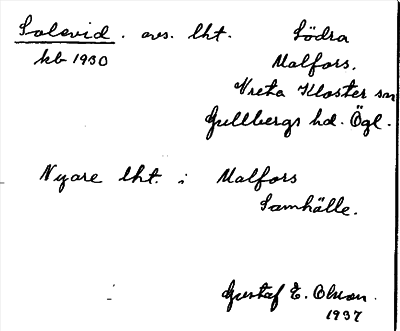 Solevid. avs. lht. Södra
kb 1930 Malfors.
Vreta Kloster sn
Gullbergs hd. Ögl.
Nyare lht. i Malfors
Samhälle.
Gustaf E. Olsson.
1937